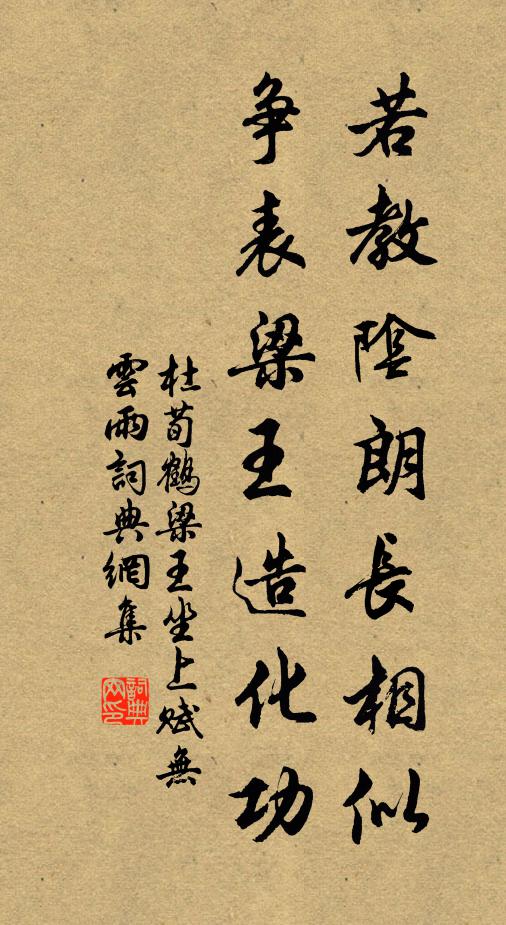 若教陰朗長相似
争表梁王造化功
杜荀鶴梁王坐上賦無
雲雨詞典網集
詞典網印